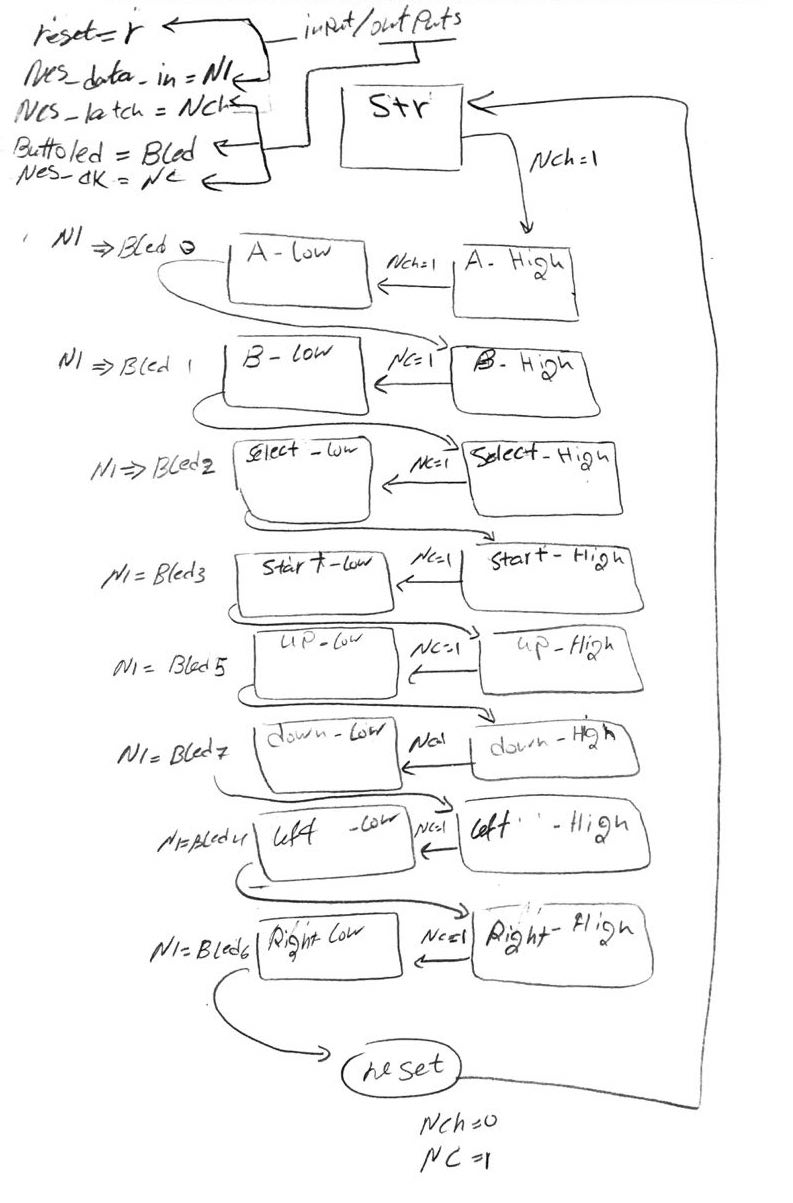 reset = r
input/outputs
Nes_data_in = NI
Nes_latch = Nch
Str
Buttoled = Bled
Nes_clk = NC
Nch=1
NI ⇒ Bled 0
A - Low
Nch=1
A - High
NI ⇒ Bled 1
B - Low
NC=1
B - High
NI ⇒ Bled 2
Select - Low
NC=1
Select - High
NI = Bled 3
Start - Low
NC=1
Start - High
NI = Bled 5
UP - Low
NC=1
up - High
NI = Bled 7
down - Low
NC=1
down - High
NI = Bled 4
Left - Low
NC=1
Left - High
NI = Bled 6
Right Low
NC=1
Right - High
reset
Nch=0
NC=1